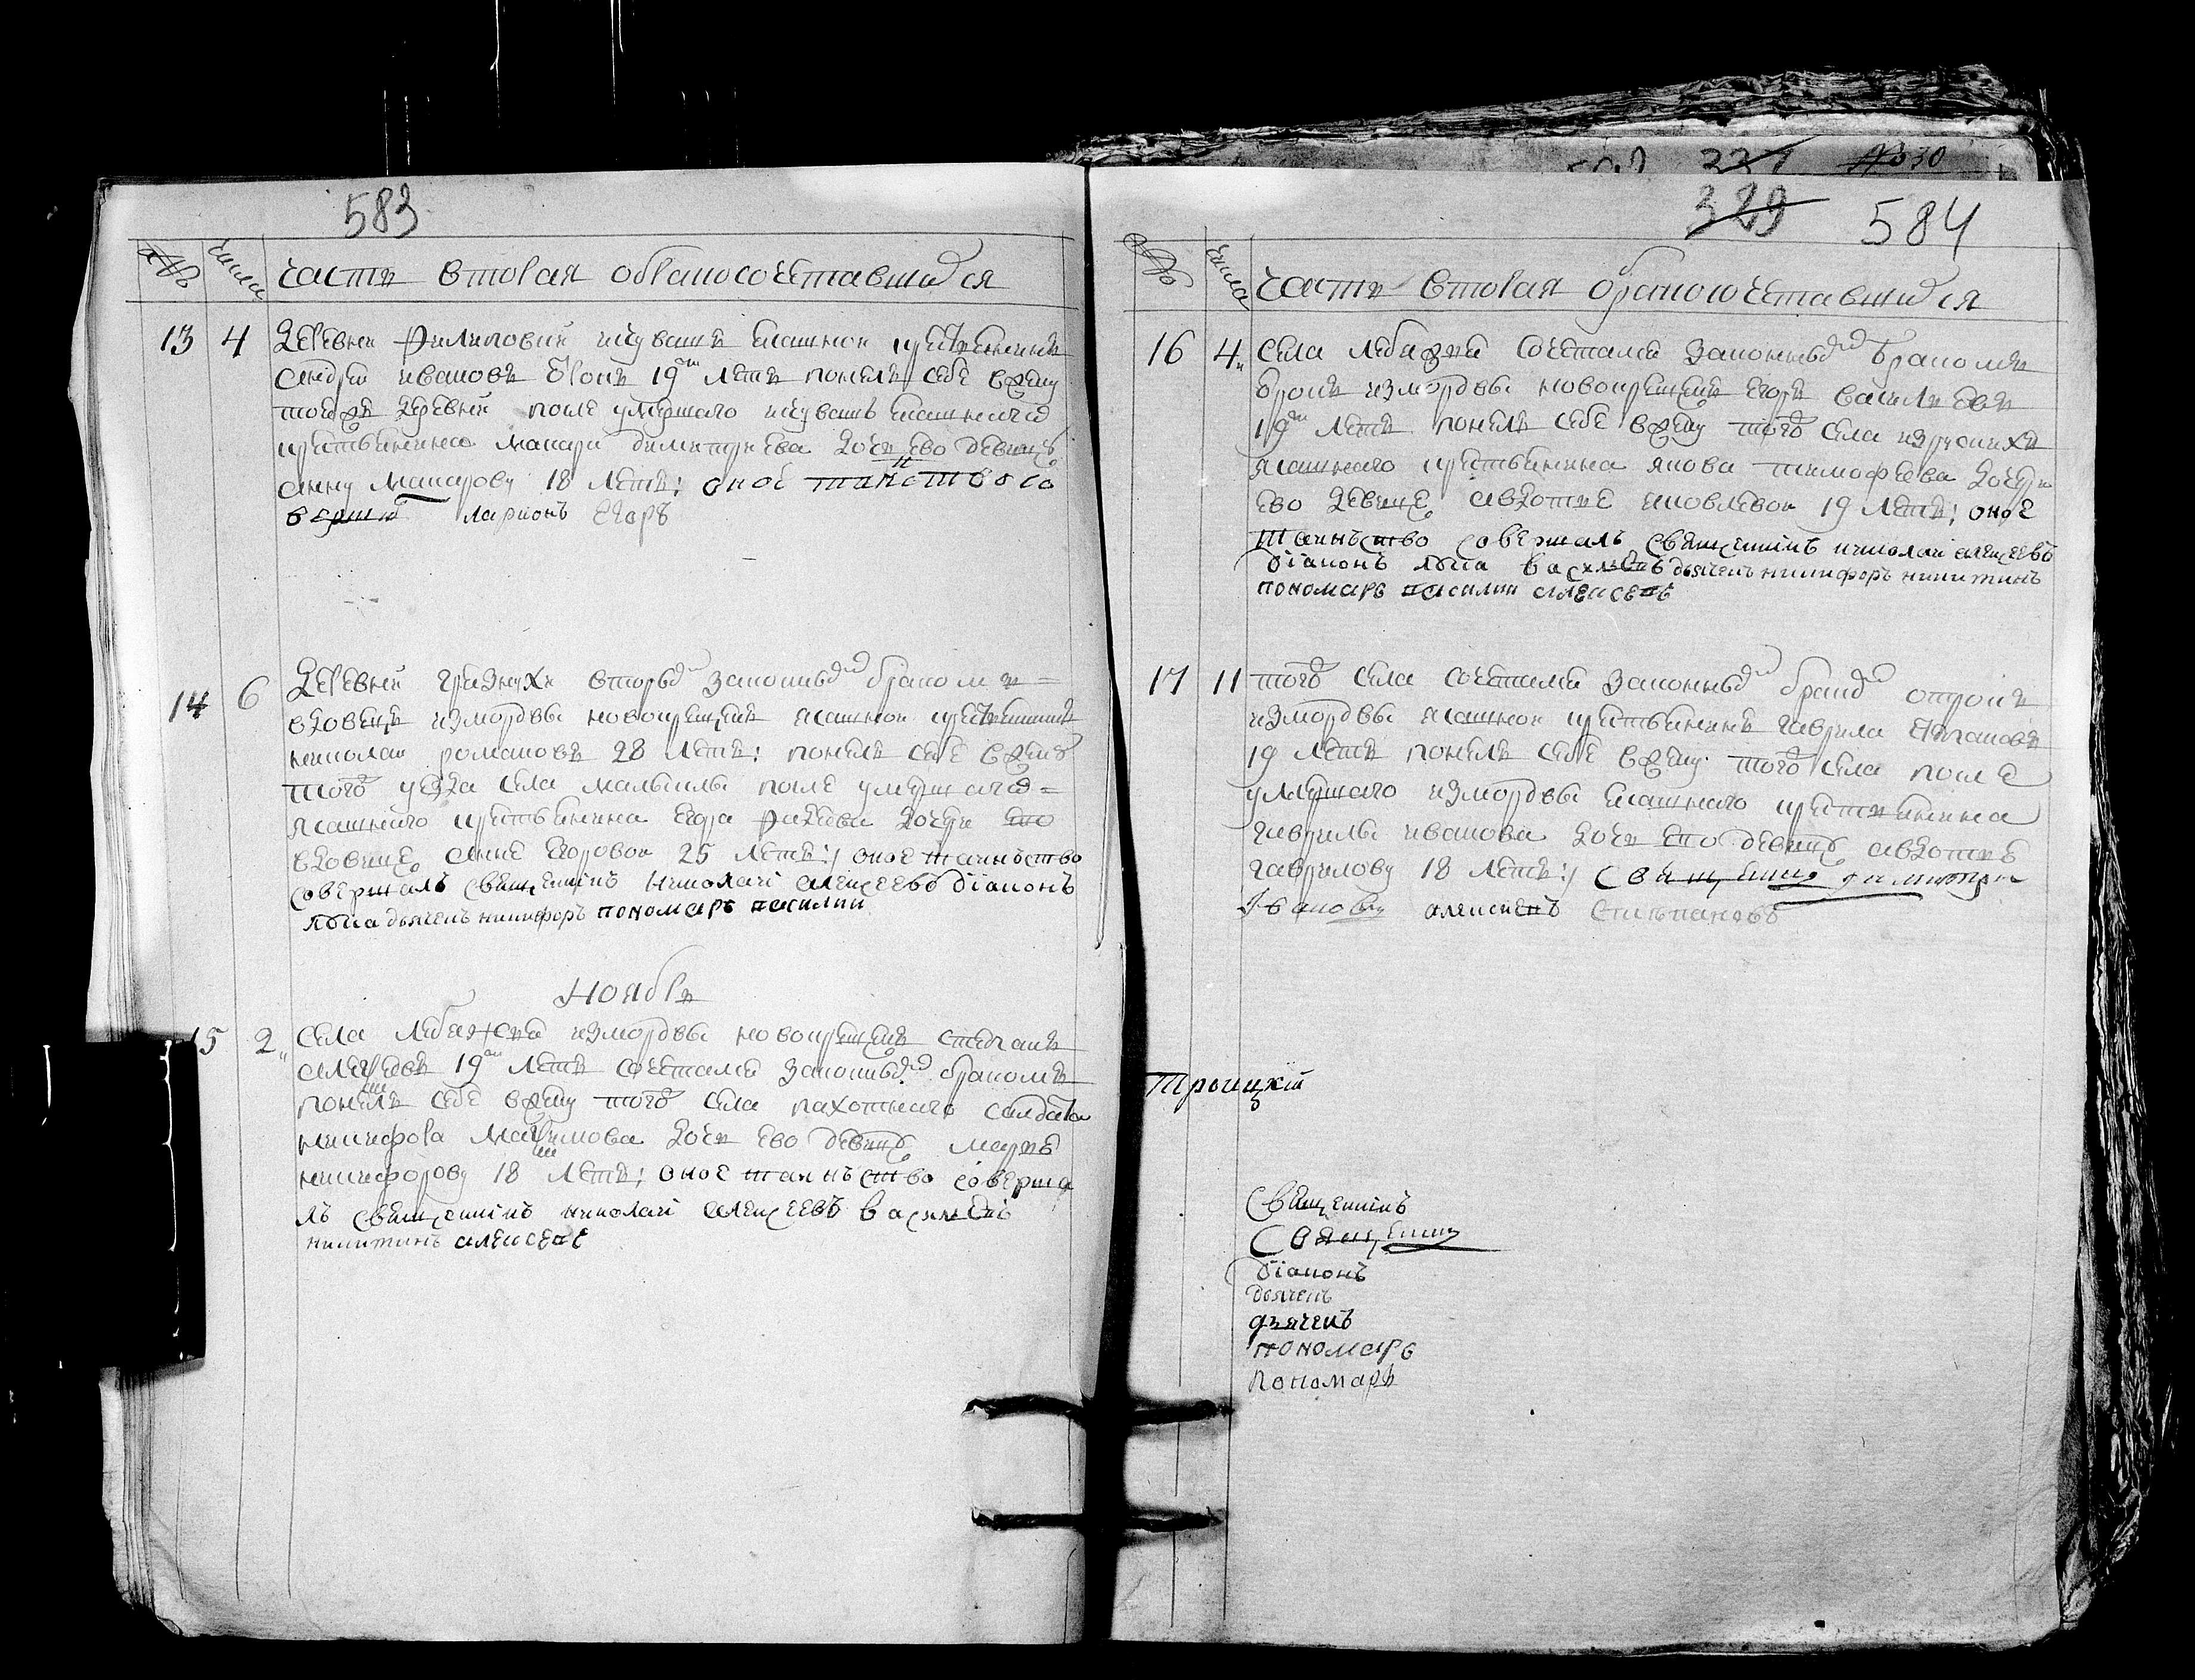 583
№ числа часть вторая обраносочетавшихся
13 4 Деревни Филиповки чуваши ясашнои крестьянинъ
андреи ивановъ 19 летъ понелъ себе вжену
тоеже деревни после умершаго чуваша ясашнаго
крестьянина макара димитриева дочь ево девицу
анну макарову 18 летъ: оное таинство со
вершал ларионъ Егоръ
14 6 Деревни грязнухи вторым законным браком
вдовецъ измордвы новокрещенъ ясашнои крестьянинъ
николаи романовъ 28 летъ: понелъ себе вжену
того уезда села после умершаго
ясашнаго крестьянина Егора дочерь ево
вдовице анне Егоровои 25 летъ: оное таинъство
совершалъ священникъ николаі алексеевъ діаконъ
лука дьячекъ никифоръ пономаръ василии
Ноября
15 2 Села лебяжья измордвы новокрещенъ степанъ
алексеевъ 19 летъ сочетался законным браком
понелъ себе вжену того села пахотнаго салдата
никифора максимова дочь ево девицу марью
никифорову 18 летъ: оное таинъство соверша
лъ священникъ николаі алексеевъ василіевъ
никитинъ алексеевъ
329 584
№ числа часть вторая обраносочетавшихся
16 4 Села лебяжья сочетался законным браком
отрокъ измордвы новокрещенъ Егоръ васильевъ
19 летъ понелъ себе вжену того села изруских
ясашнаго крестьянина якова тимофеева дочерь
ево девице авдотье яковлевои 19 летъ: оное
таинъство совершалъ священникъ николаі алексеевъ
діаконъ лука василіевъ дьячекъ никифоръ никитинъ
пономаръ василии алексеевъ
17 11 того села сочетался законным браком отрокъ
измордвы ясашнои крестьянинъ гаврила степановъ
19 летъ понелъ себе вжену того села после
умершаго измордвы ясашнаго крестьянина
гаврилы иванова дочь ево девицу авдотью
гаврилову 18 летъ: священникъ димитри
Ивановъ алексеи Степановъ
Троицкій
Священникъ
Священник
діаконъ
дьячекъ
дьячекъ
пономаръ
пономаръ